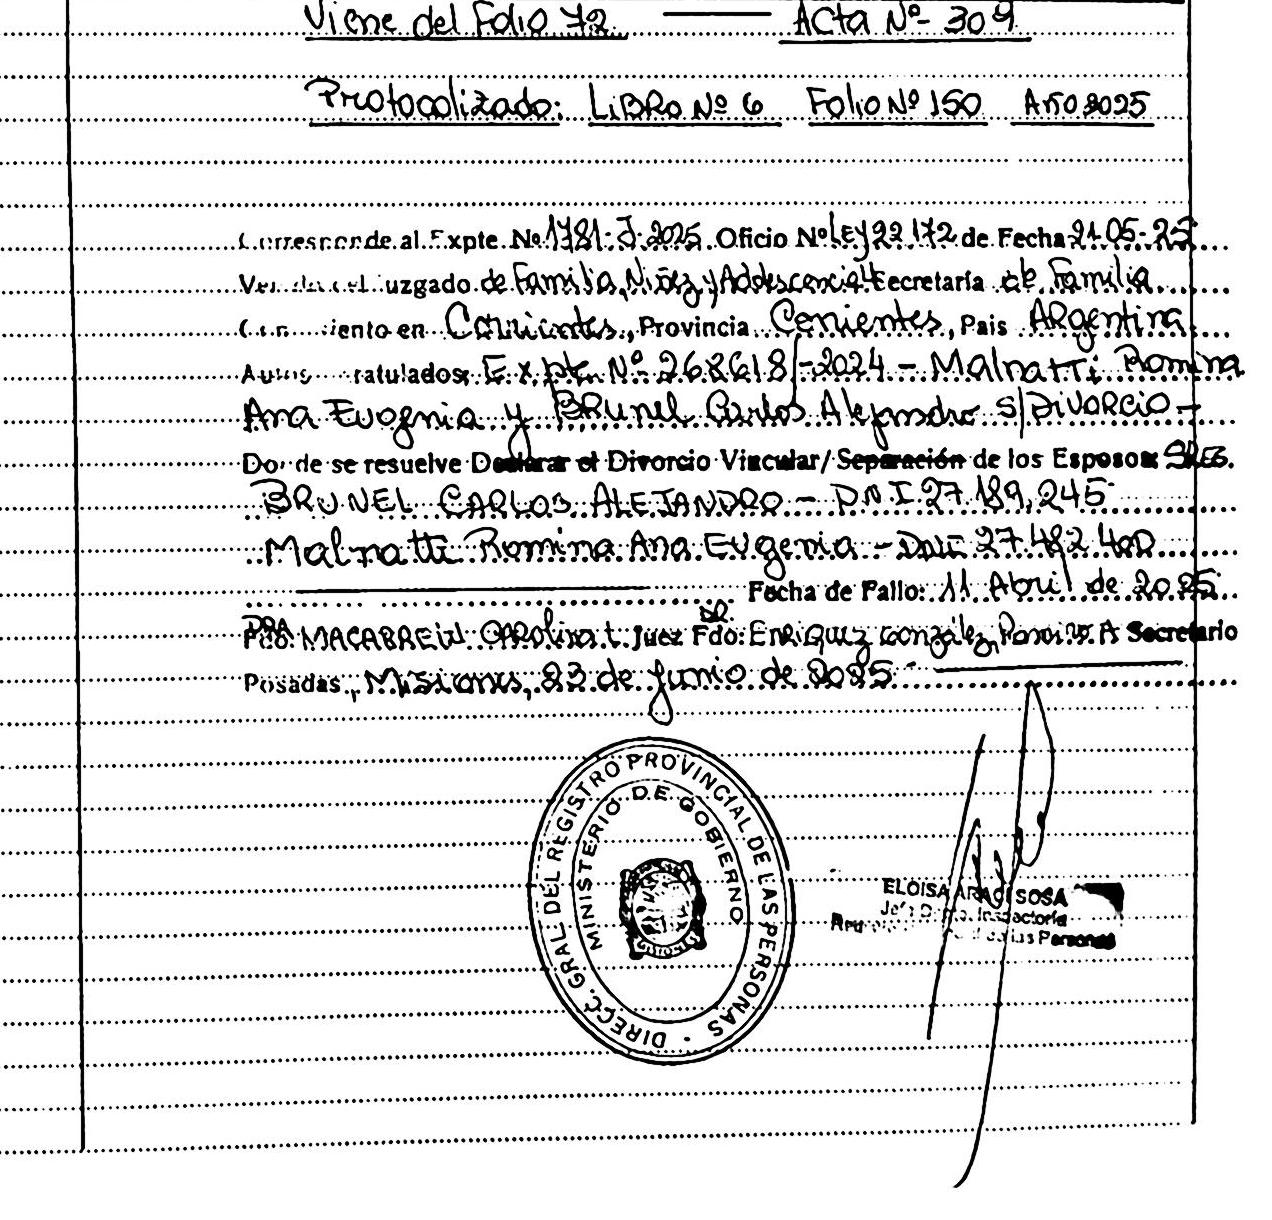 Viene del Folio 72 Acta Nº 309
Protocolizado: LiBRo Nº 6 Folio Nº 150 Año 2025
Corresponde al Expte. Nº 1781-J-2025 Oficio Nº Ley 22172 de Fecha 21-05-25
juzgado de Familia, Niñez y Adolescencia 4 Secretaría de Familia
en Corrientes, Provincia Corrientes, Pais ARgentina
Autos Expte. Nº 268618/-2024 - Malnatti Romina
Ana Eugenia y BRunel Carlos Alejandro s/DIVORCIO -
Donde se resuelve Declarar el Divorcio Vincular/Separación de los Esposos: SRES.
BRUNEL CARLOS ALEJANDRO - D.N.I 27.189.245
Malnatti Romina Ana Eugenia - DNI 27.482.400
Fecha de Fallo: 11 Abril de 2025
DRA Fdo. MACABREIU CARolina I. Juez DR. Fdo: ENRiquez González, Ramiro A Secretario
Posadas, Misiones, 23 de Junio de 2025
DIRECC. GRAL DEL REGISTRO PROVINCIAL DE LAS PERSONAS
MINISTERIO DE GOBIERNO
ELOISA ARACI SOSA
Jefa Dpto. Inspectoría
de las Personas